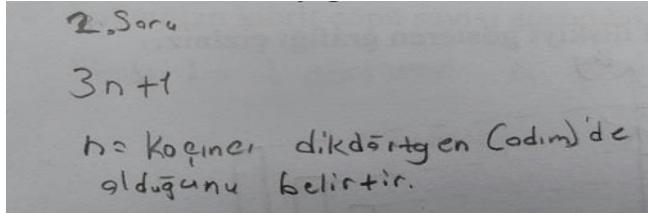 2. Soru
3n+1
n= Kaçıncı dikdörtgen (adım)'de
olduğunu belirtir.